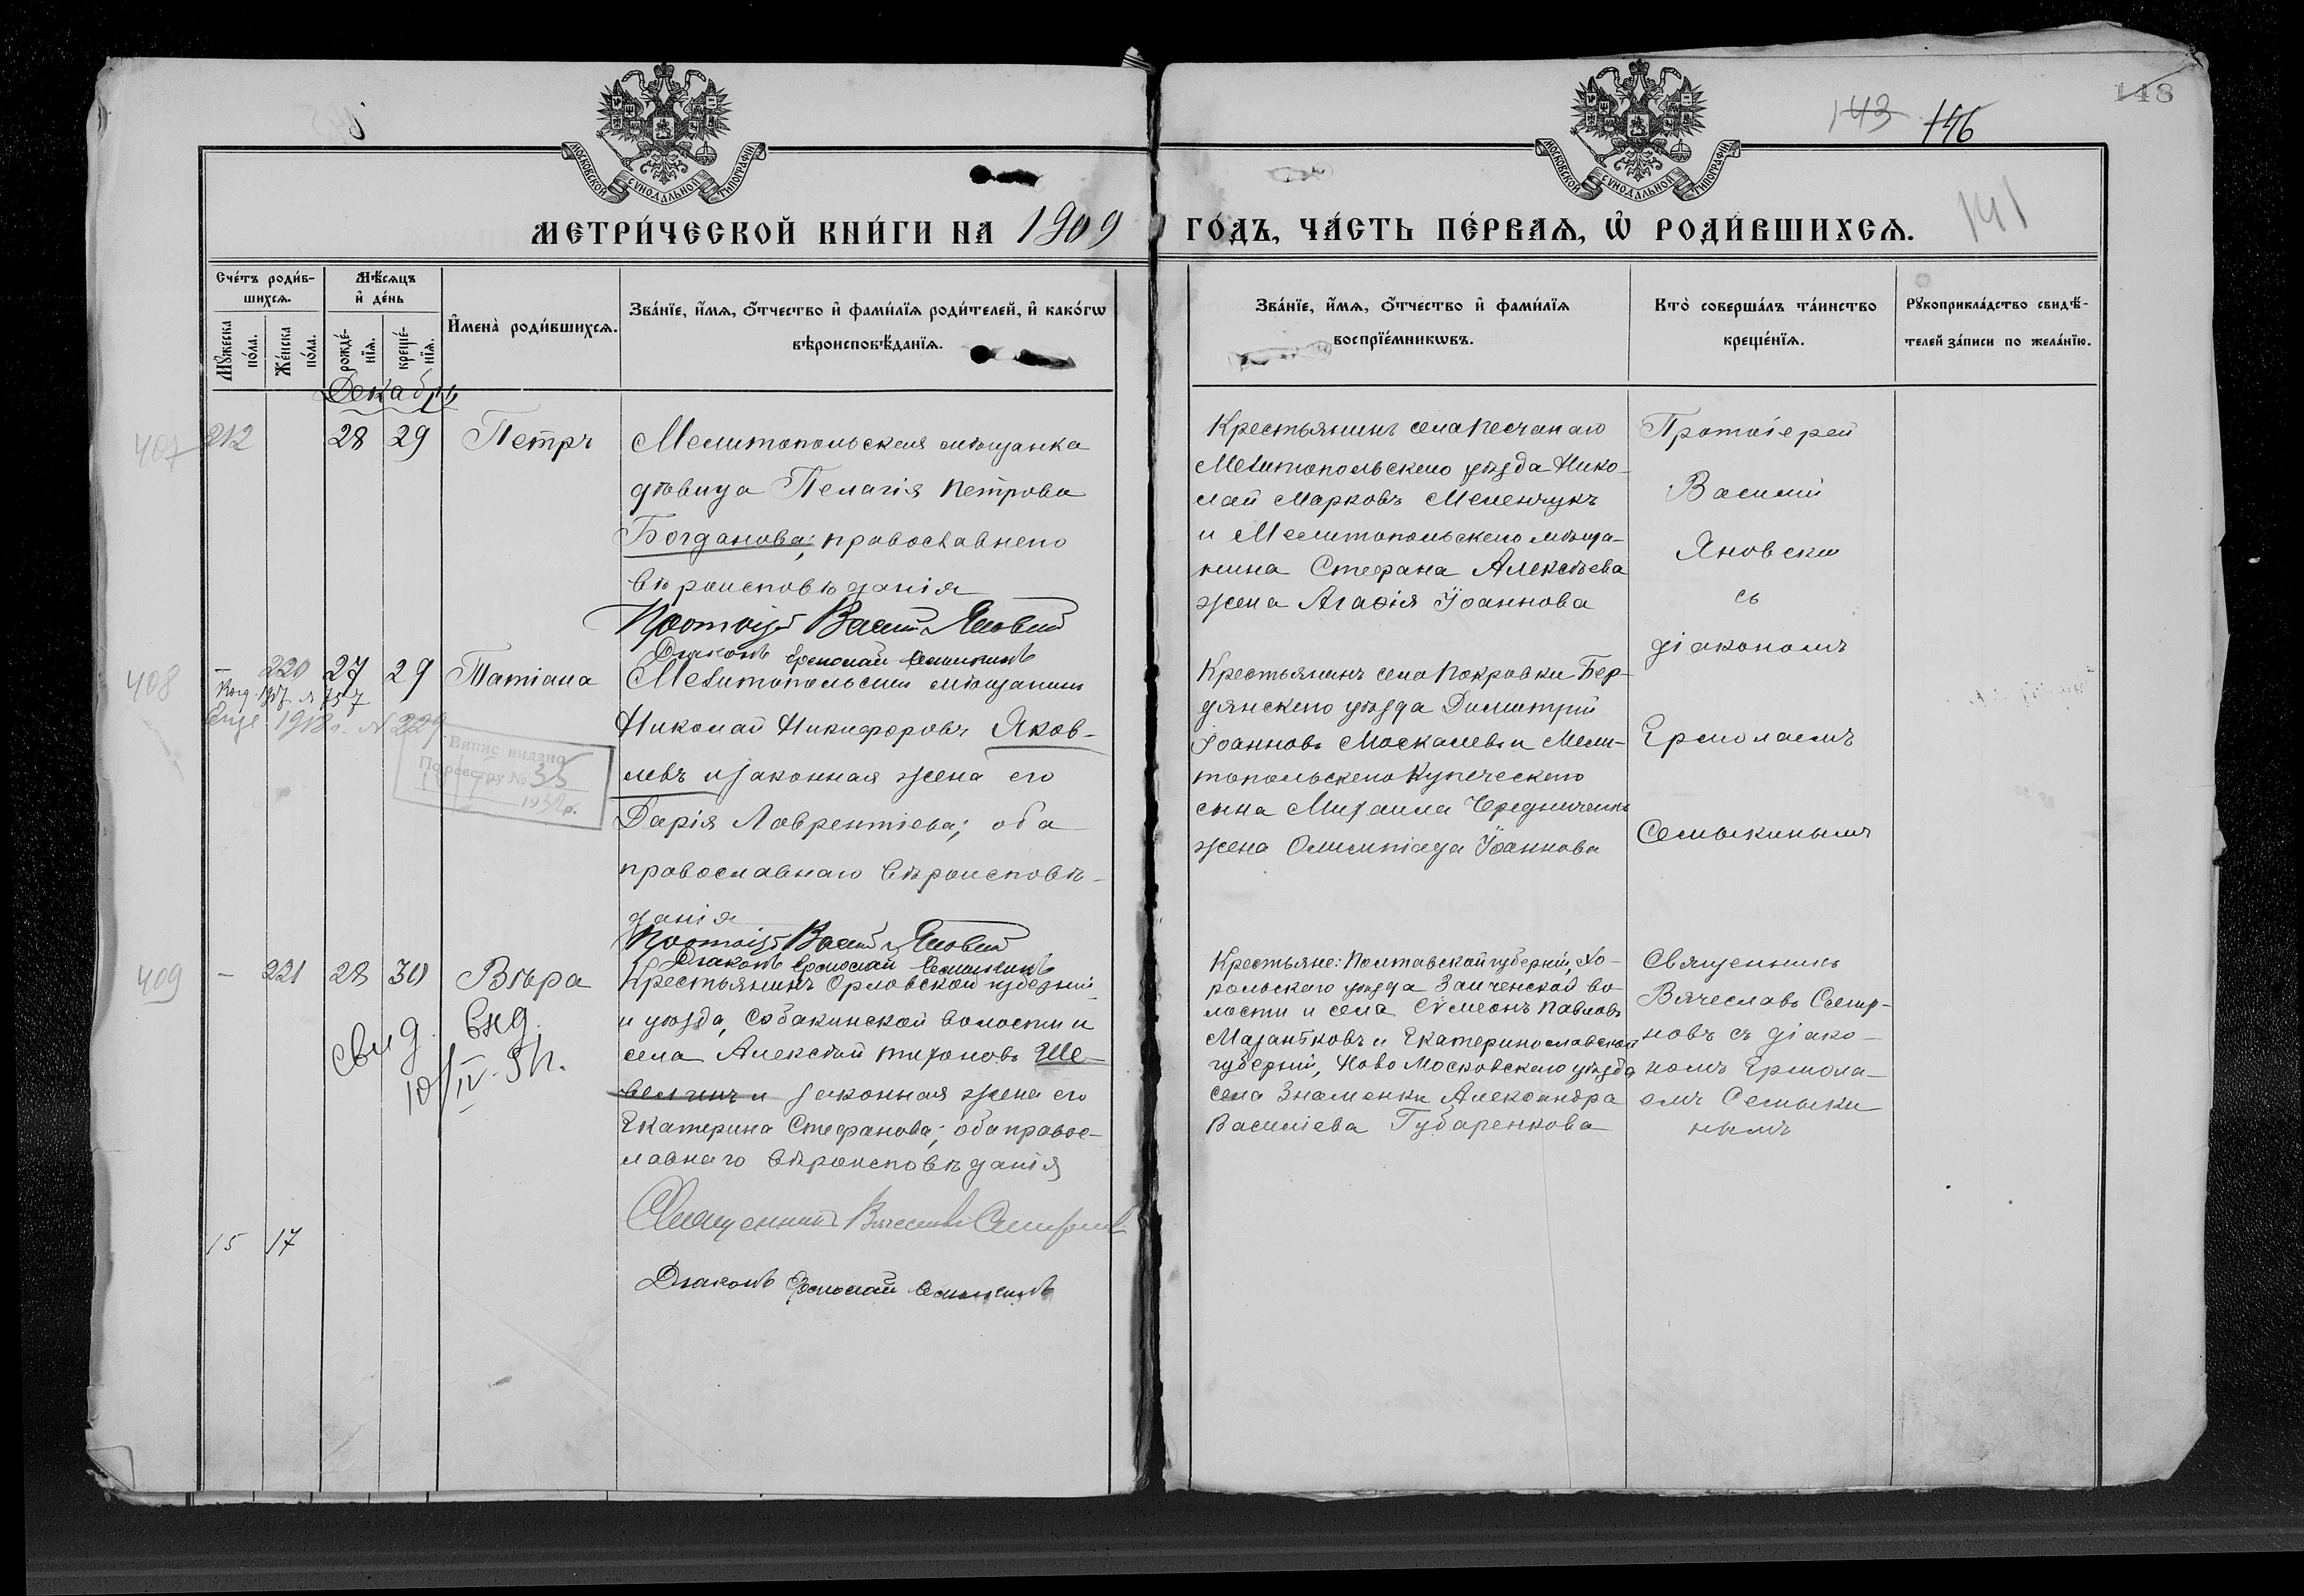 143 146
148
141
МОСКОВСКОЙ СѴНОДАЛЬНОЙ ТИПОГРАФІИ
МОСКОВСКОЙ СѴНОДАЛЬНОЙ ТИПОГРАФІИ
МЕТРИ́ЧЕСКОЙ КНИ́ГИ НА 1909
ГО́ДЪ, ЧА́СТЬ ПЕ́РВАѦ, Ѽ РОДИ́ВШИХСѦ.
Сче́тъ роди́в-
шихсѧ.
Мꙋ́жеска по́ла.
Же́нска по́ла.
Мѣ́сѧцъ
и҆ де́нь
рожде́-нїѧ.
креще́-нїѧ.
И҆мена̀ роди́вшихсѧ.
Зва́нїе, и҆́мѧ, ѻ҆́тчество и҆ фами́лїѧ роди́телей, и҆ како́гѡ
вѣроисповѣ́данїѧ.
Зва́нїе, и҆́мѧ, ѻ҆́тчество и҆ фами́лїѧ
воспрїе́мникѡвъ.
Кто̀ соверша́лъ та́инство
креще́нїѧ.
Рꙋкоприкла́дство свидѣ́-
телей за́писи по жела́нїю.
Декабрь
407
212
28
29
Петръ
Мелитопольская мѣщанка
дѣвица Пелагія Петрова
Богданова; православнаго
вѣроисповѣданія
Протоіер Василій Яновскій
Діаконъ Ермолай Семыкинъ
Крестьянинъ села Песчанаго
Мелитопольскаго уѣзда Нико-
лай Марковъ Меленчукъ
и Мелитопольскаго мѣща-
нина Стефана Алексѣева
жена Агафія Іоаннова
Протоіерей
Василій
Яновскій
съ
діакономъ
Ермолаемъ
Семыкинымъ
408
–
220
27
29
Татіана
1917 № 757
Еще 1918 г. № 229
Випис видано
По реєстру № 35
193 р.
Мелитопольскій мѣщанинъ
Николай Никифоровъ Яков-
левъ и законная жена его
Дарія Лаврентіева; оба
православнаго вѣроисповѣ-
данія
Протоіер Василій Яновскій
Діаконъ Ермолай Семыкинъ
Крестьянинъ села Покровки Бер-
дянскаго уѣзда Димитрій
Іоанновъ Москалевъ и Мели-
топольскаго Купеческаго
сына Михаила Чередниченко
жена Олимпіада Іоаннова
409
–
221
28
30
Вѣра
Свид. выд.
10/IV
Крестьянинъ Орловской губерніи
и уѣзда, Собакинской волости и
села Алексѣй Тихоновъ Ше-
велгинъ и законная жена его
Екатерина Стефанова; оба правос-
лавнаго вѣроисповѣданія
Священникъ Вячеславъ Смирновъ
Діаконъ Ермолай Семыкинъ
Крестьяне: Полтавской губерніи, Хо-
рольскаго уѣзда Заиченской во-
лости и села Сѵмеонъ Павловъ
и Екатеринославской
губерніи, Ново Московскаго уѣзда
села Знаменки Александра
Василіева Губаренкова
Священникъ
Вячеславъ Смир-
новъ съ діако-
номъ Ермола-
емъ Семыки
нымъ
15 17